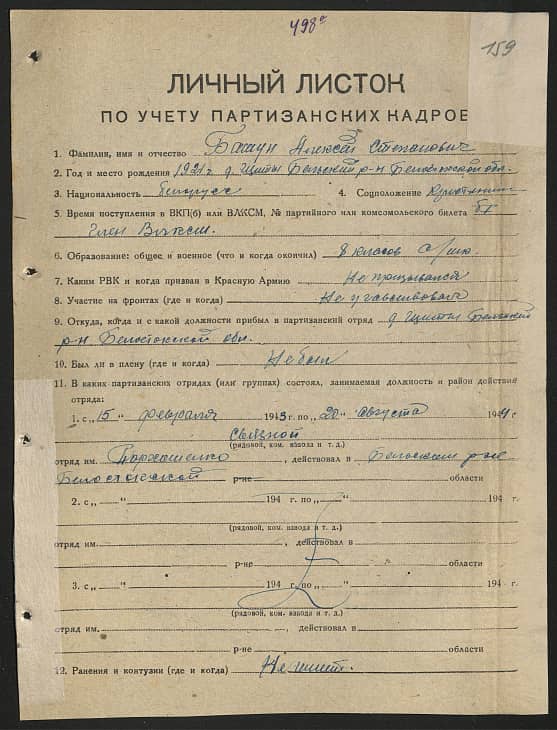 498а
159
ЛИЧНЫЙ ЛИСТОК
ПО УЧЕТУ ПАРТИЗАНСКИХ КАДРОВ
1. Фамилия, имя и отчество Алексей Степанович
2. Год и место рождения 1921 г. д. Щиты Бельский р-н Белостокской обл.
3. Национальность Белорусс 4. Соцположение
5. Время поступления в ВКП(б) или ВЛКСМ, № партийного или комсомольского билета
Член ВЛКСМ.
6. Образование: общее и военное (что и когда окончил) 8 классов
7. Каким РВК и когда призван в Красную Армию Не призывался
8. Участие на фронтах (где и когда) Не участвовал
9. Откуда, когда и с какой должности прибыл в партизанский отряд д. Щиты Бельский
р-н Белостокской обл.
10. Был ли в плену (где и когда) Не был
11. В каких партизанских отрядах (или группах) состоял, занимаемая должность и район действия
отряда:
1. с „15“ февраля 1943 г. по „20“ августа 1944 г.
связной
(рядовой, ком. взвода и т. д.)
отряд им. Пархоменко, действовал в Бельском р-не
Белостокской р-не области
2. с „ “ 194 г. по „ “ 194 г.
(рядовой, ком. взвода и т. д.)
отряд им. , действовал в
р-не области
3. с „ “ 194 г. по „ “ 194 г.
(рядовой, ком. взвода и т. д.)
отряд им. , действовал в
р-не области
12. Ранения и контузии (где и когда) Не имеет.